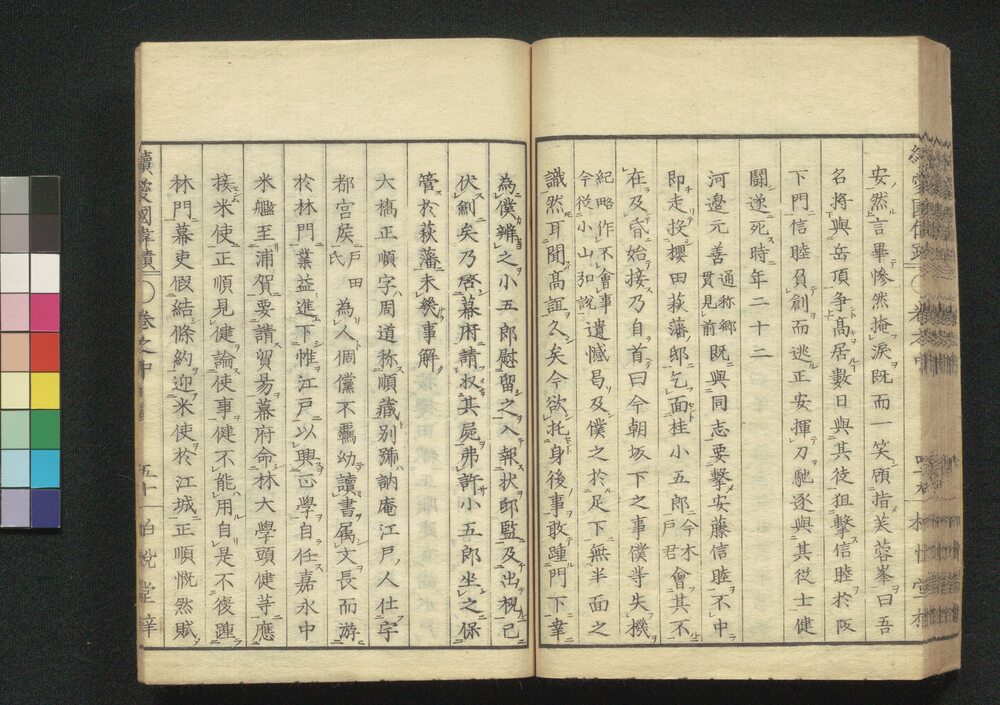 安然言畢慘然掩涙既而一笑顧指芙蓉峯曰吾
名將與岳頂争髙居數日與其徒狙撃信睦於阪
下門信睦負創而逃正安揮刀馳逐與其従士健
闘遂死時年二十二
河邊元善通称郷貫見前既與同志要撃安藤信睦不中
即走投櫻田萩藩邸乞面桂小五郎今木戸君會其不
在及昏始接乃自首曰今朝坂下之事僕等失機
紀略作不會事今従小山弘説遺憾曷及僕之於足下無半面之
識然耳聞髙誼久矣今欲托身後事敢踵門下幸
為僕辨之小五郎慰留之入報状邸監及出梘已
伏劍矣乃啓幕府請収其屍弗許小五郎坐之保
管於萩藩未幾事解
大橋正順字周道称順藏別號訥庵江戸人仕宇
都宮矦戸田氏為人倜儻不羈幼讀書属文長而游
於林門業益進下帷江戸以興正學自任嘉永中
米艦至浦賀要請貿易幕府命林大學頭健等應
接米使正順見健論使事健不能用自是不復踵
林門幕吏假結條約迎米使於江城正順慨然賦
續愛國偉績 巻之中 五十一 怡悦堂梓